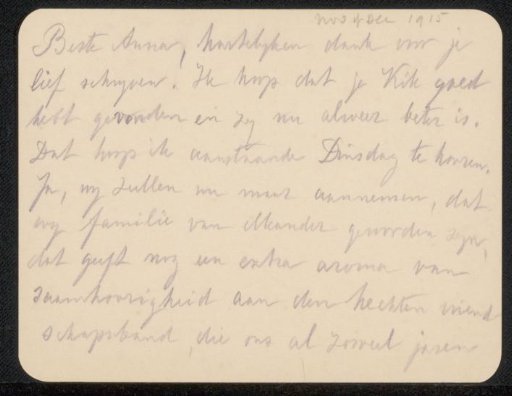 nov of dec 1915
Beste Anna, hartelijken dank voor je
lief schrijven. Ik hoop dat je Kik goed
hebt gevonden en zij nu alweer beter is.
Dat hoop ik aanstaande Dinsdag te hooren.
Ja, wij zullen nu maar aannemen, dat
wij familie van elkander geworden zijn,
dat geeft nog een extra aroma van
saamhoorigheid aan den hechten vriend
schapsband, die ons al zooveel jaren